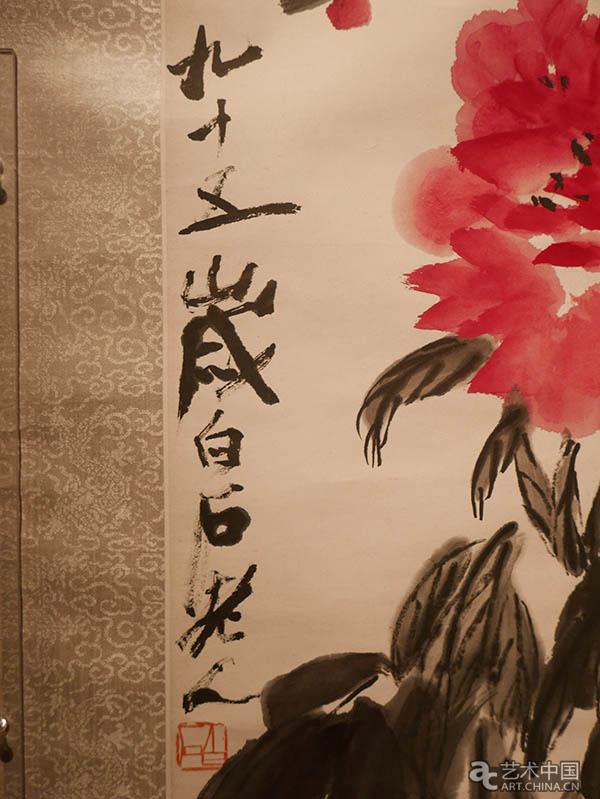 九十五歲白石老人
艺术中国
ART.CHINA.CN